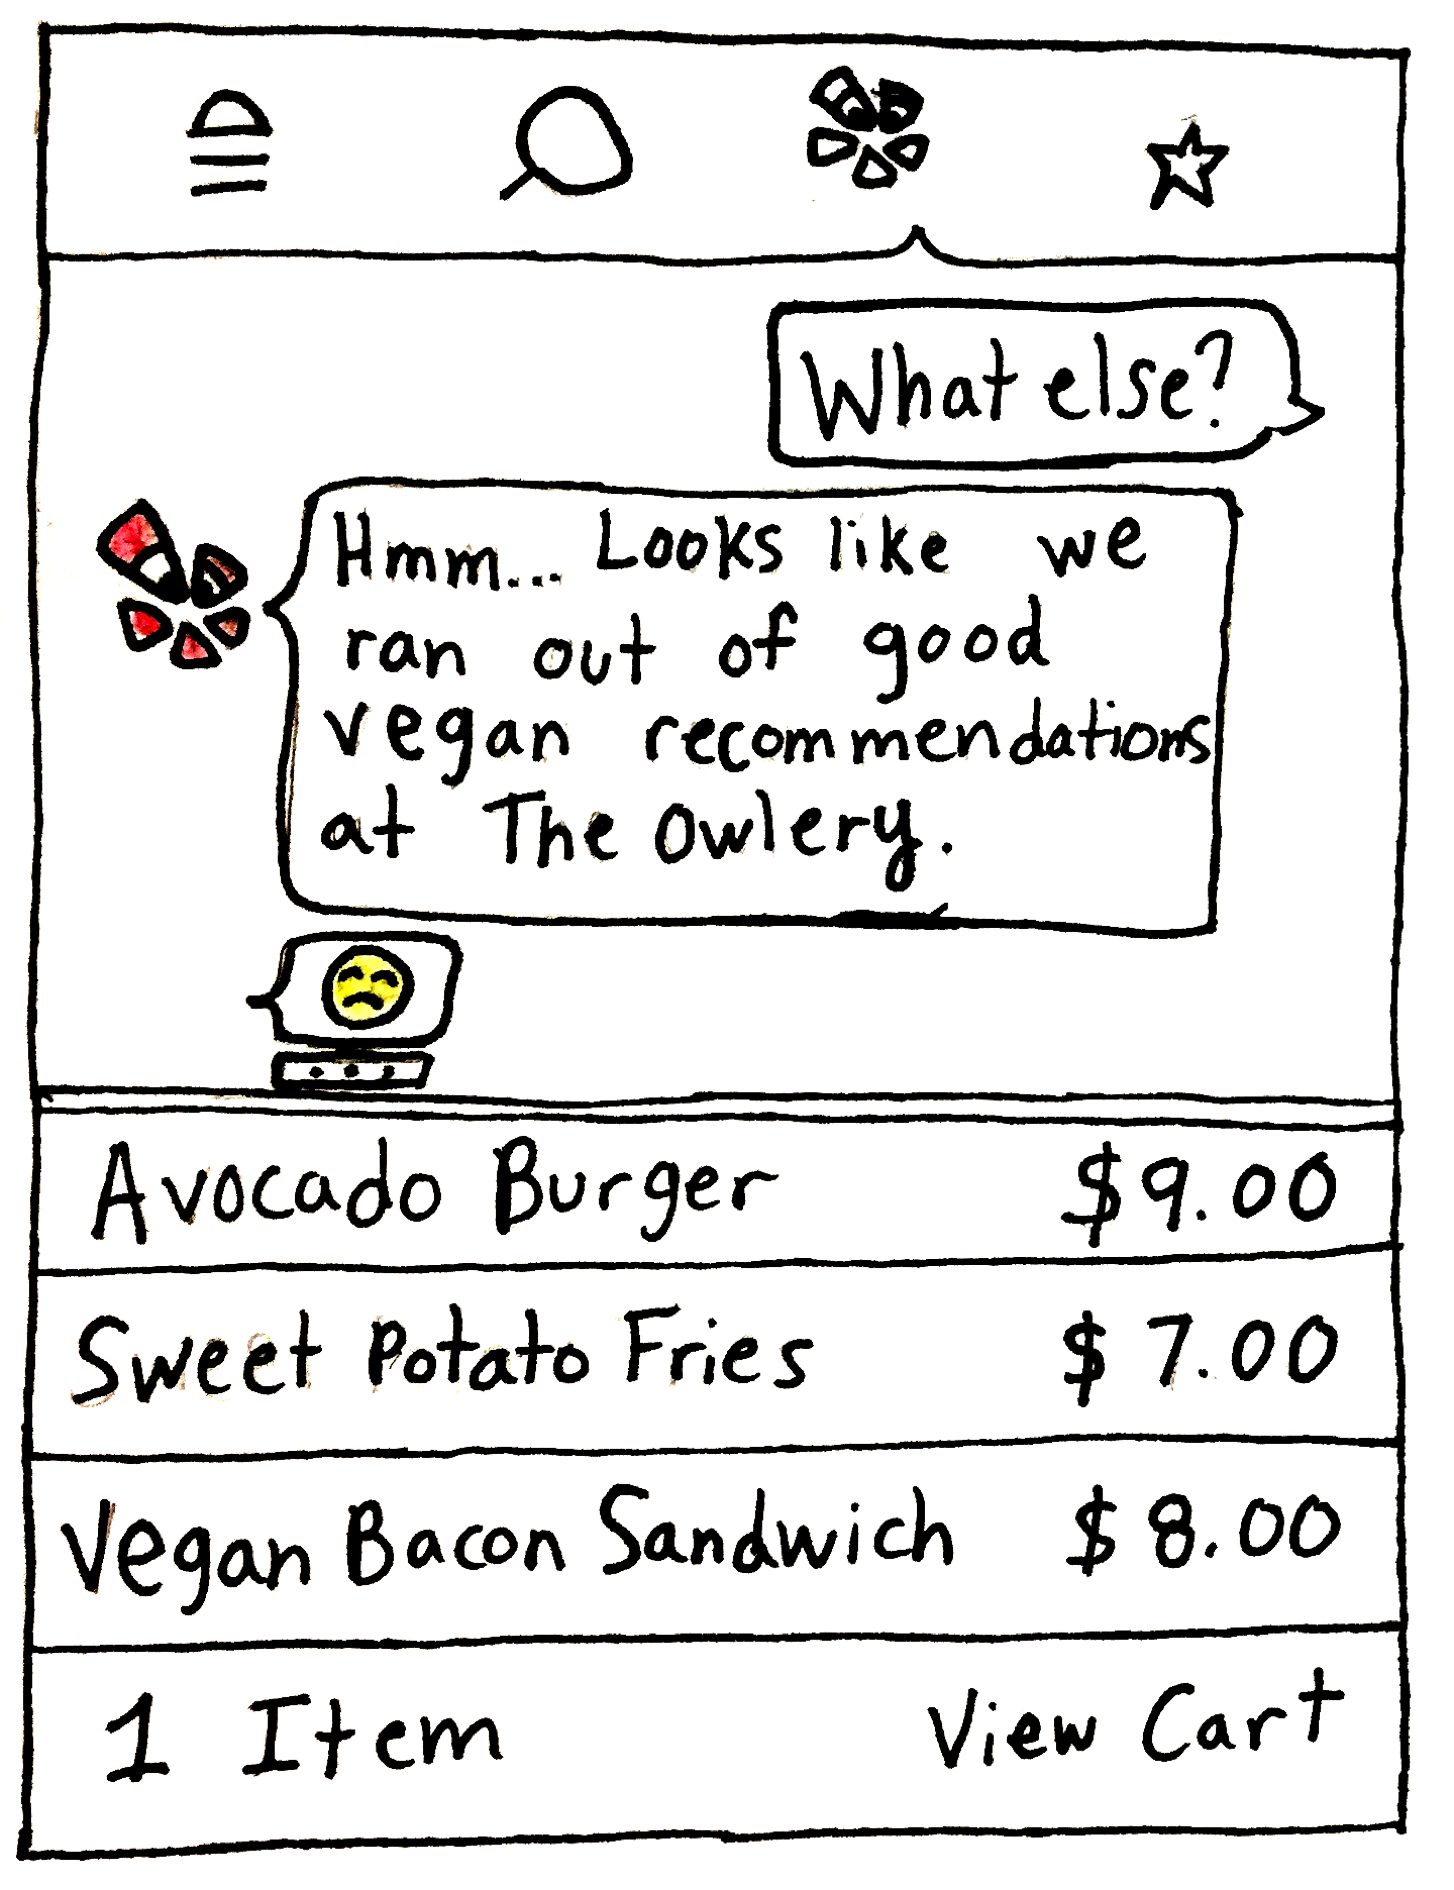 What else?
Hmm... Looks like we
ran out of good
vegan recommendations
at The Owlery.
Avocado Burger $9.00
Sweet Potato Fries $7.00
Vegan Bacon Sandwich $8.00
1 Item View Cart